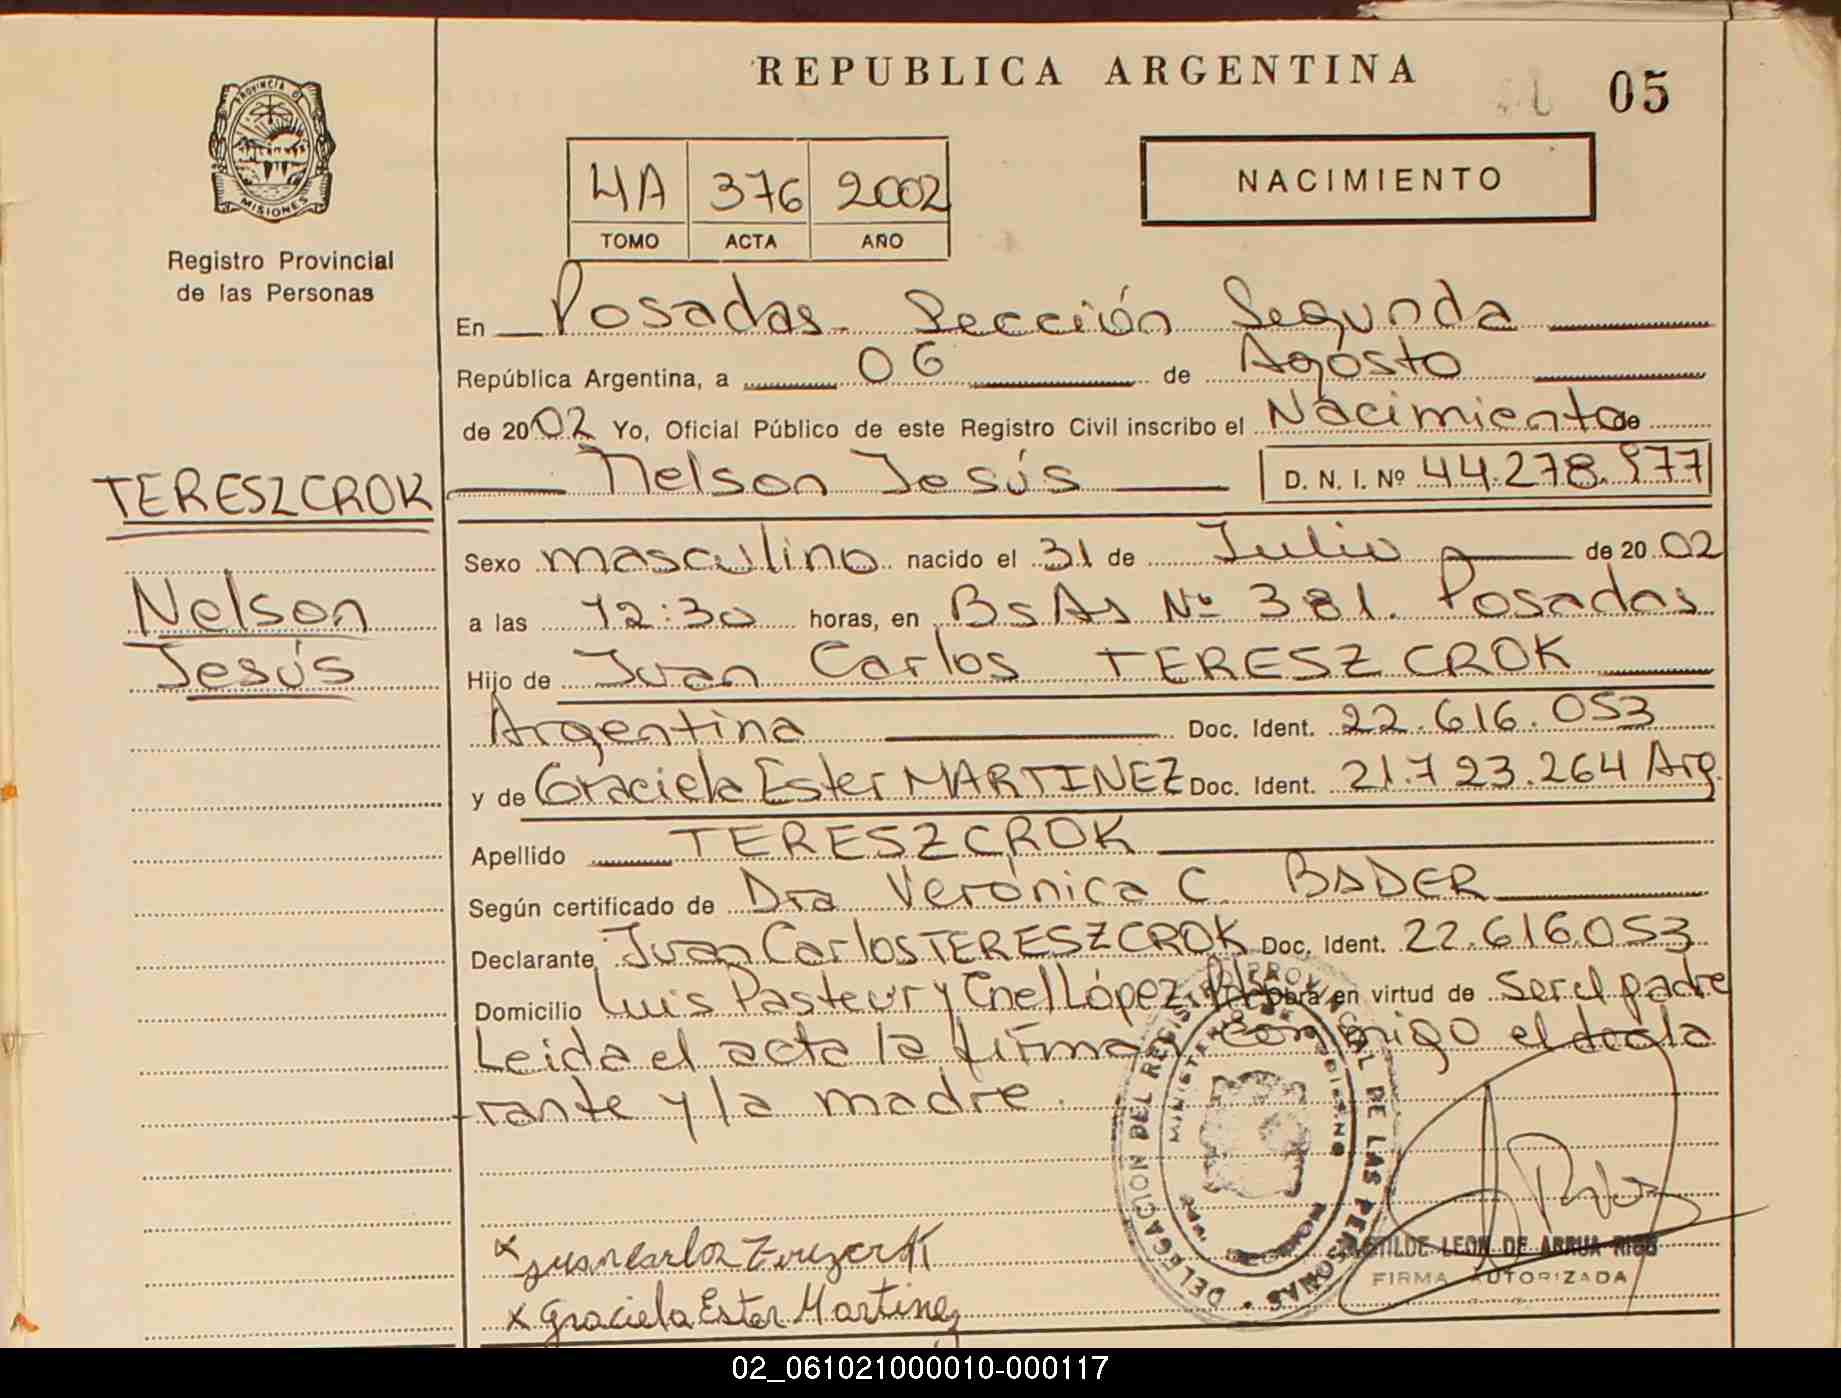 REPUBLICA ARGENTINA
05
PROVINCIA DE
MISIONES
Registro Provincial
de las Personas
4A 376 2002
TOMO ACTA AÑO
NACIMIENTO
En Posadas. Sección Segunda
República Argentina, a 06 de Agosto
de 2002 Yo, Oficial Público de este Registro Civil inscribo el Nacimiento de
Nelson Jesús D. N. I. Nº 44.278.977
TERESZCROK
Nelson
Jesús
Sexo masculino nacido el 31 de Julio de 2002
a las 12:30 horas, en BsAs Nº 381. Posadas
Hijo de Juan Carlos TERESZCROK
Argentina Doc. Ident. 22.616.053
y de Graciela Ester MARTINEZ Doc. Ident. 21.723.264 Arg.
Apellido TERESZCROK
Según certificado de Dra Verónica C. BADER
Declarante Juan Carlos TERESZCROK Doc. Ident. 22.616.053
Domicilio Luis Pasteur y Cnel López. Obra en virtud de ser el padre
Leida el acta la firman conmigo el decla
rante y la madre.
DELEGACION DEL REGISTRO PROVINCIAL DE LAS PERSONAS
MINISTERIO DE GOBIERNO
x Juan Carlos
x Graciela Ester Martinez
LEON DE ARRUA RIOS
FIRMA AUTORIZADA
02_061021000010-000117